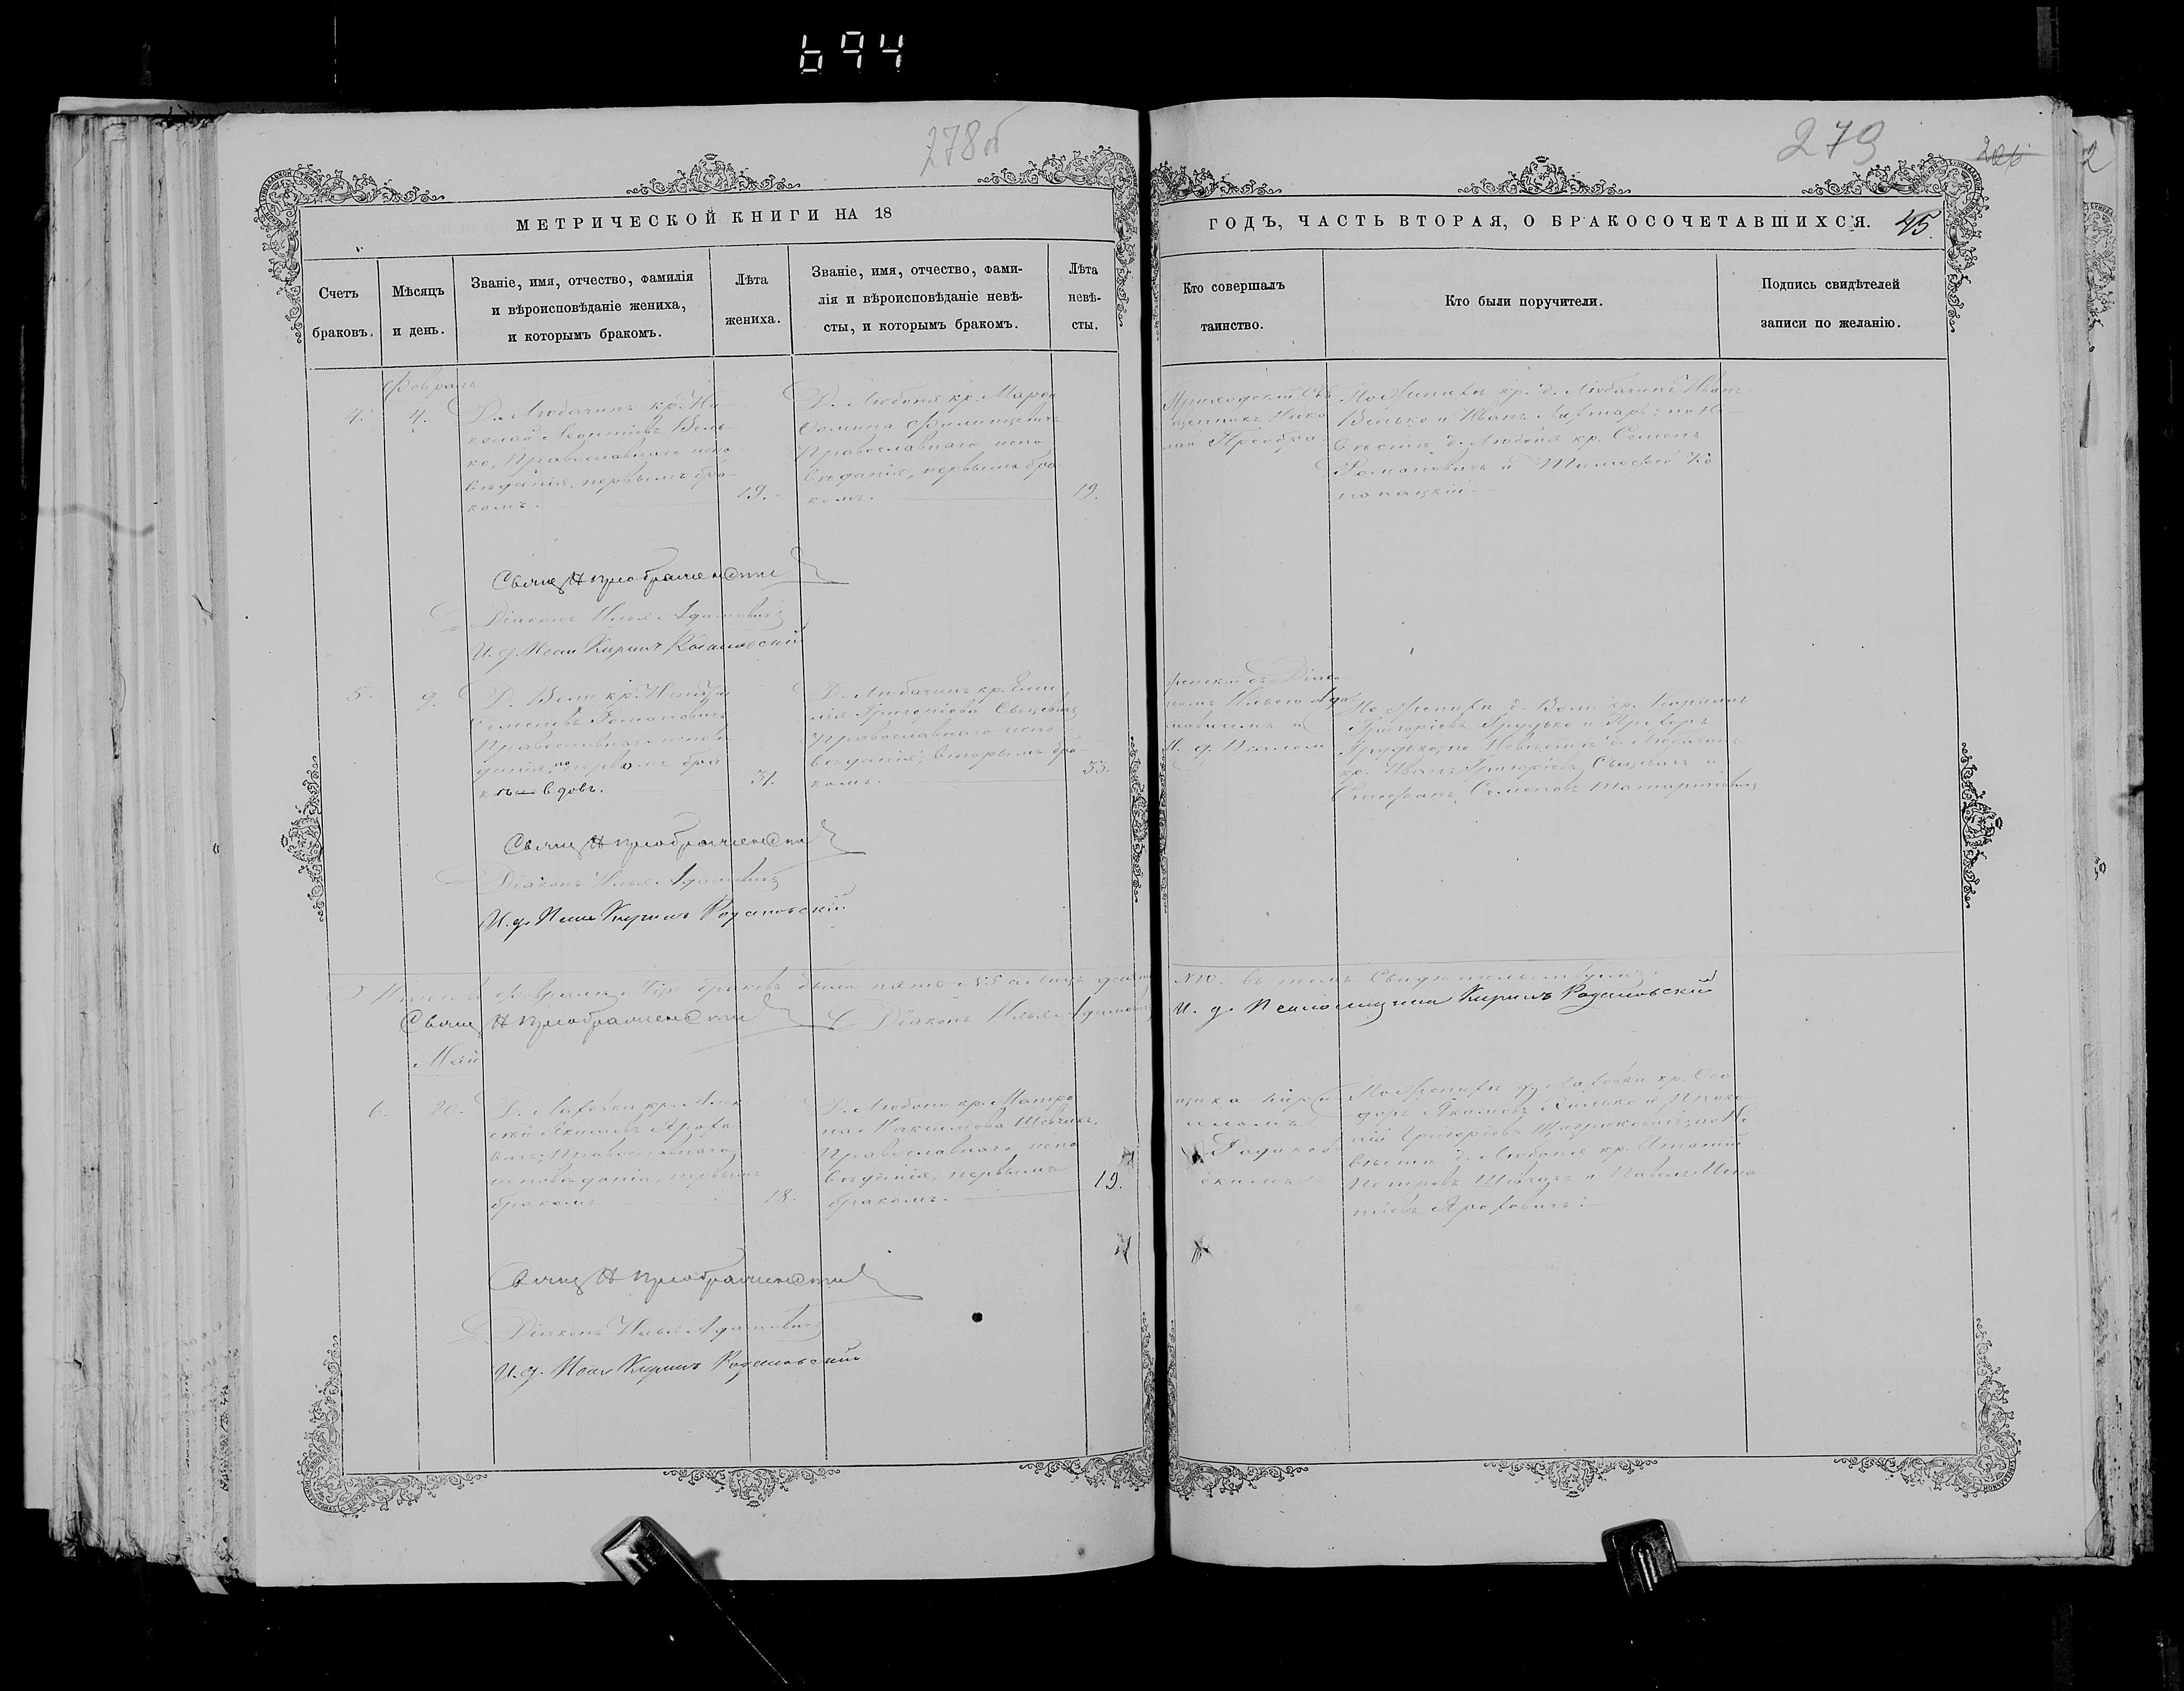 694
278об
279
206
2
МЕТРИЧЕСКОЙ КНИГИ НА 18
ГОДЪ, ЧАСТЬ ВТОРАЯ, О БРАКОСОЧЕТАВШИХСЯ. 45.
Счетъ
браковъ.
Мѣсяцъ
и день.
Званіе, имя, отчество, фамилія
и вѣроисповѣданіе жениха,
и которымъ бракомъ.
Лѣта
жениха.
Званіе, имя, отчество, фами-
лія и вѣроисповѣданіе невѣ-
сты, и которымъ бракомъ.
Лѣта
невѣ-
сты.
Кто совершалъ
таинство.
Кто были поручители.
Подпись свидѣтелей
записи по желанію.
Февраль
4.
4.
Д. Любачинъ кр. Ни-
колай Леонтіевъ Вель-
ко, Православнаго испо-
вѣданія, первымъ бра-
комъ.
19.
Д. Любоня кр. Марѳа
Ѳомина Филипцевичъ
Православнаго испо
вѣданія, первымъ бра
комъ.
19.
Приходскій Свя
щенникъ Нико
лай Преобра
По Женихѣ кр. д. Любачинъ Иванъ
Велько и Иванъ ; по Не
вѣстѣ д. Любоня кр. Семенъ
Романовичъ и Тимоѳей Ко
Свящ Н Преображенскій
Діаконъ Илья Адамовичъ
И. д. Псал Кирилъ Родаковскій
5.
9.
Д. Вели кр.
Семеновъ Романовичъ
Православнаго исповѣ
данія, по первомъ бра
кѣ вдовъ.
31.
Д. Любачинъ кр. Еми
лія Григоріева Сыцевичъ
Православнаго испо
вѣданія, вторымъ бра-
комъ.
33.
женскій съ Діако
номъ Ильею Ада
мовичемъ и
И. д. Псалом
По Женихѣ д. Вели кр. Кирилъ
Григоріевъ Грудько и Прохоръ
Грудько; по Невѣстѣ д. Любачинъ
кр. Иванъ Григоріевъ и
Стефанъ Семеновъ
Свящ Н Преображенскій
Діаконъ Илья Адамовичъ
И. д. Псал Кирилъ Родаковскій
Итого въ Февралѣ М-цѣ браковъ было пять №5
№10. въ томъ Свидѣтельствуемъ:
Свящ Н Преображенскій Діаконъ Илья Адамовичъ
И. д. Псаломщика Кирилъ Родаковскій
Май
6.
20.
Д. Лаховки кр. Алек
сѣй Якимовъ Ярохо
вичъ, Православнаго
исповѣданія, первымъ
бракомъ.
18.
Д. Любони кр. Матро
на Максимова Шевчикъ,
Православнаго испо
вѣданія, первымъ
бракомъ.
19.
щика Кири
ломъ
Родаков
скимъ
По Женихѣ д. Лаховки кр. Ѳео
доръ Якимовъ и Проко
пій Григоріевъ по Не
вѣстѣ д. Любоня кр. Игнатій
Петровъ Шевчикъ и Павелъ Игна
тіевъ Яроховичъ.
Свящ Н Преображенскій
Діаконъ Илья Адамовичъ
И. д. Псал Кирилъ Родаковскій